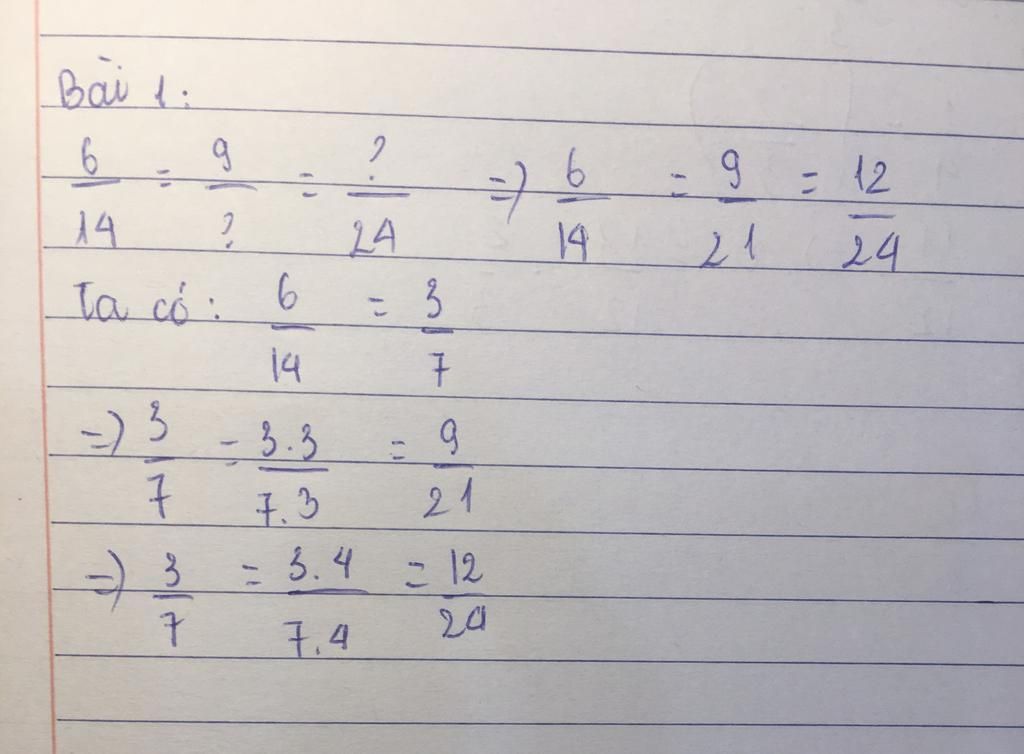 Bài 1:
6/14 = 9/? = ?/24 => 6/14 = 9/21 = 12/24
Ta có: 6/14 = 3/7
=> 3/7 = 3.3/7.3 = 9/21
=> 3/7 = 3.4/7.4 = 12/24